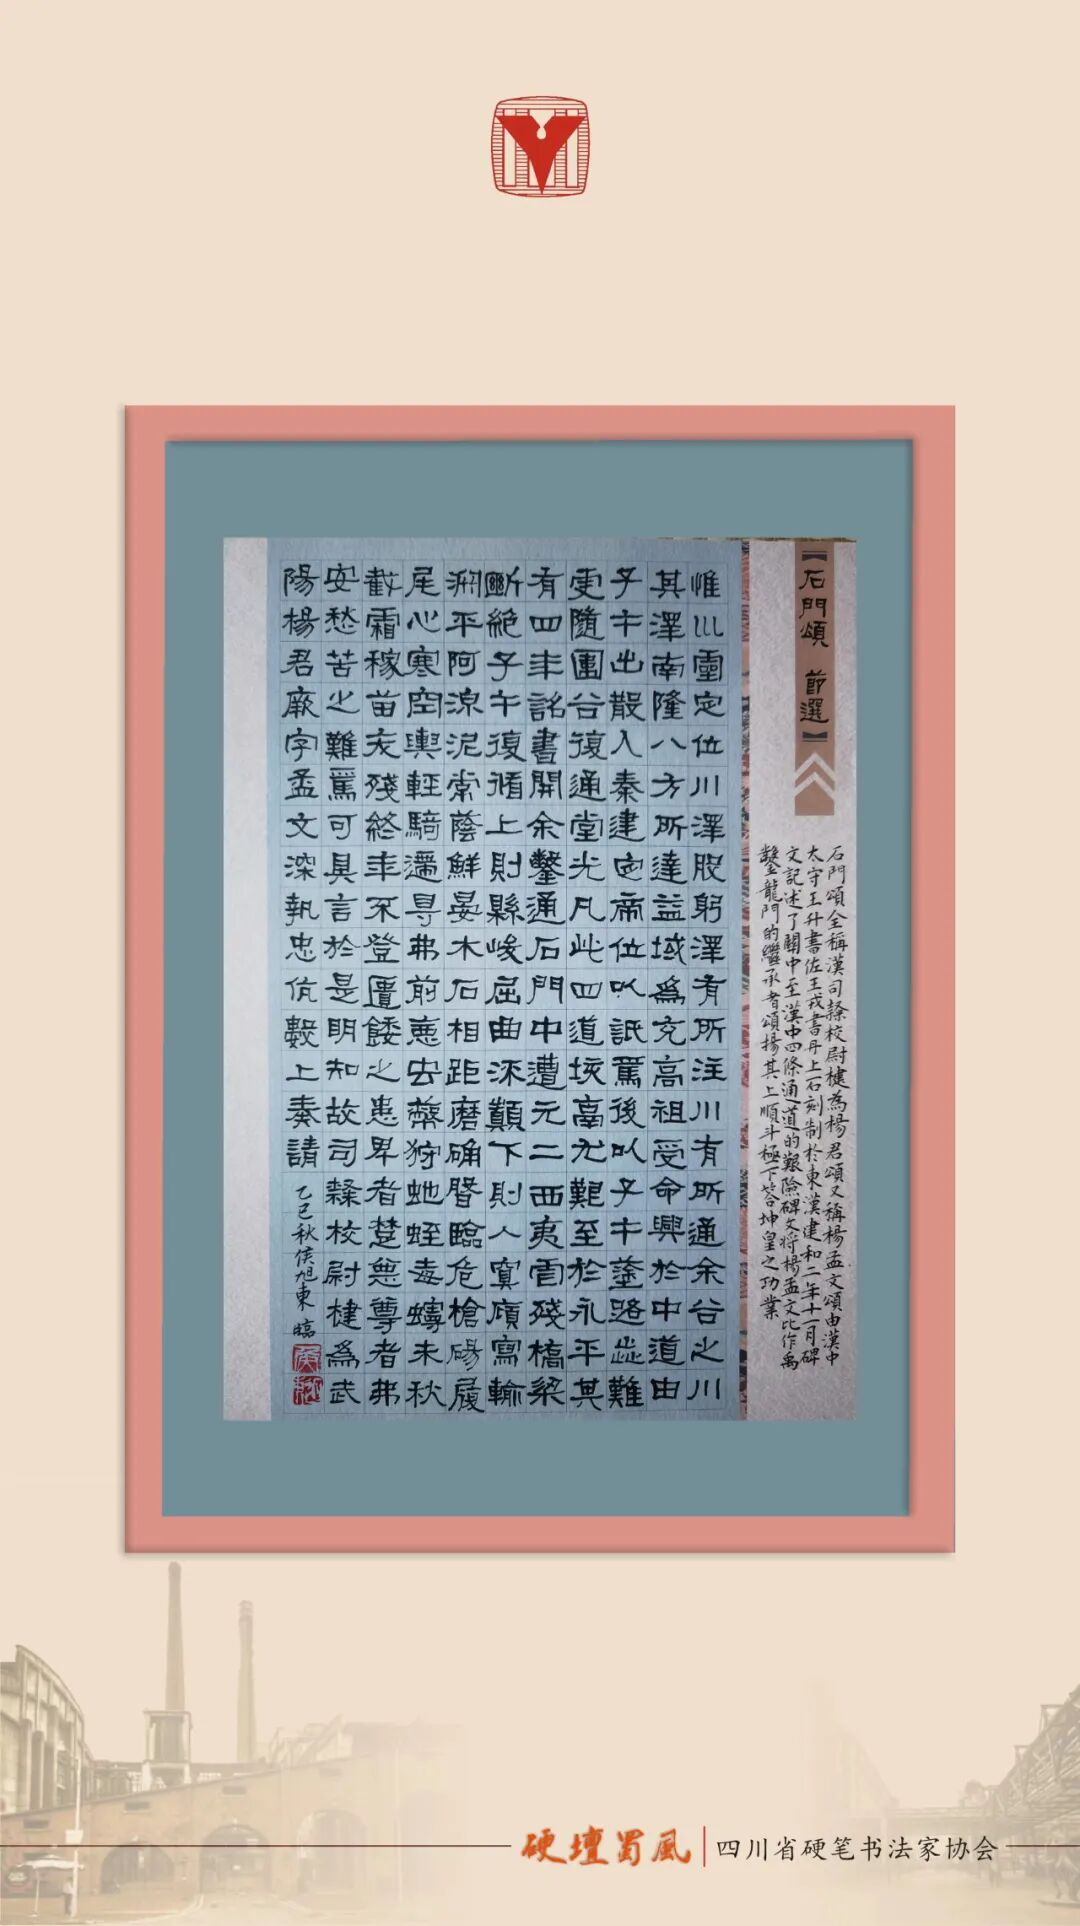 【石門頌 節選】
石門頌全稱漢司隸校尉楗為楊君頌又稱楊孟文頌由漢中
太守王升書佐王戎書丹上石刻制於東漢建和二年十一月碑
文記述了關中至漢中四條通道的艱險碑文将楊孟文比作禹
鑿龍門的繼承者頌揚其上順斗極下荅坤皇之功業
惟巛靈定位川澤股躬澤有所注川有所通余谷之川
其澤南隆八方所達益域為充高祖受命興於中道由
子午出散入秦建定帝位以詆焉後以子午塗路歰難
更隨圍谷復通堂光凡此四道垓鬲尤艱至於永平其
有四年詔書開余鑿通石門中遭元二西夷虐殘橋梁
斷絶子午復循上則縣峻屈曲流顛下則人寞廎寫輸
淵平阿湶泥常蔭鮮晏木石相距磨确臨危槍碭履
尾心寒空輿輕騎遰㝵弗前惡虫弊狩虵蛭毒蟃未秋
截霜稼苗夭殘終年不登匱餧之患卑者楚惡尊者弗
安愁苦之難焉可具言於是明知故司隸校尉楗為武
陽楊君厥字孟文深執忠伉數上奏請
乙巳秋侯旭東臨
硬壇蜀風
四川省硬笔书法家协会